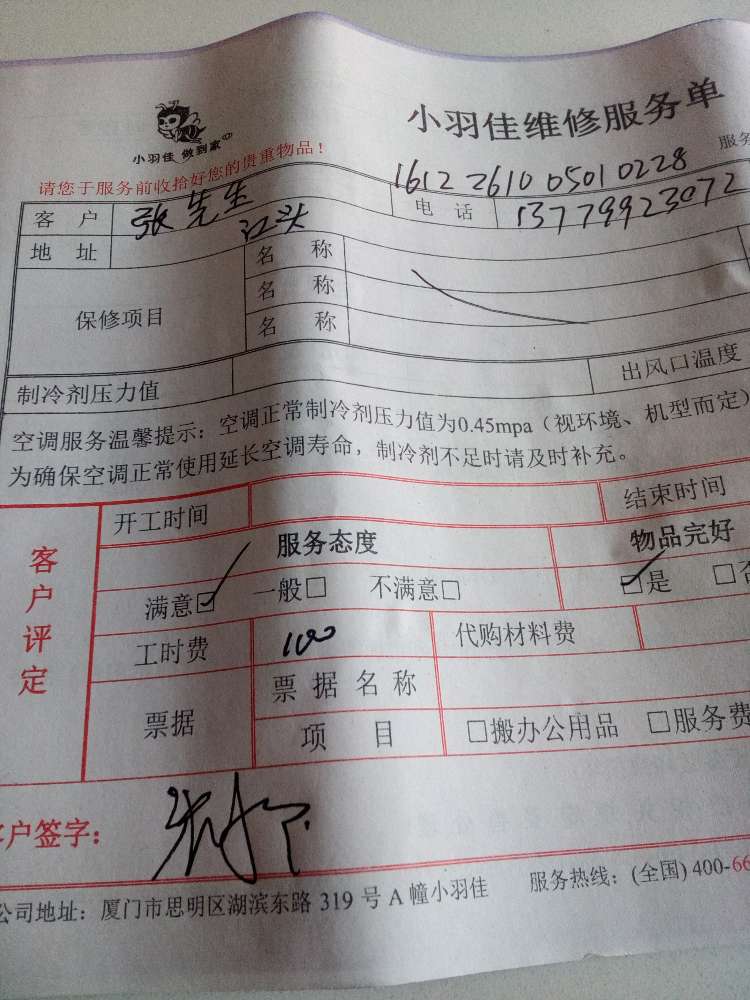 小羽佳 做到家
小羽佳维修服务单
请您于服务前收拾好您的贵重物品!
服务
1612 2610 0501 0228
客户 张先生 电话 13779923072
地址 江头
保修项目 名称
名称
名称
制冷剂压力值 出风口温度
空调服务温馨提示：空调正常制冷剂压力值为0.45mpa（视环境、机型而定）
为确保空调正常使用延长空调寿命，制冷剂不足时请及时补充。
客户评定
开工时间 结束时间
服务态度 物品完好
满意☑ 一般□ 不满意□ ☑是 □否
工时费 100 代购材料费
票据 票据名称
项目 □搬办公用品 □服务费
客户签字：
公司地址：厦门市思明区湖滨东路 319 号 A 幢小羽佳 服务热线：(全国) 400-66